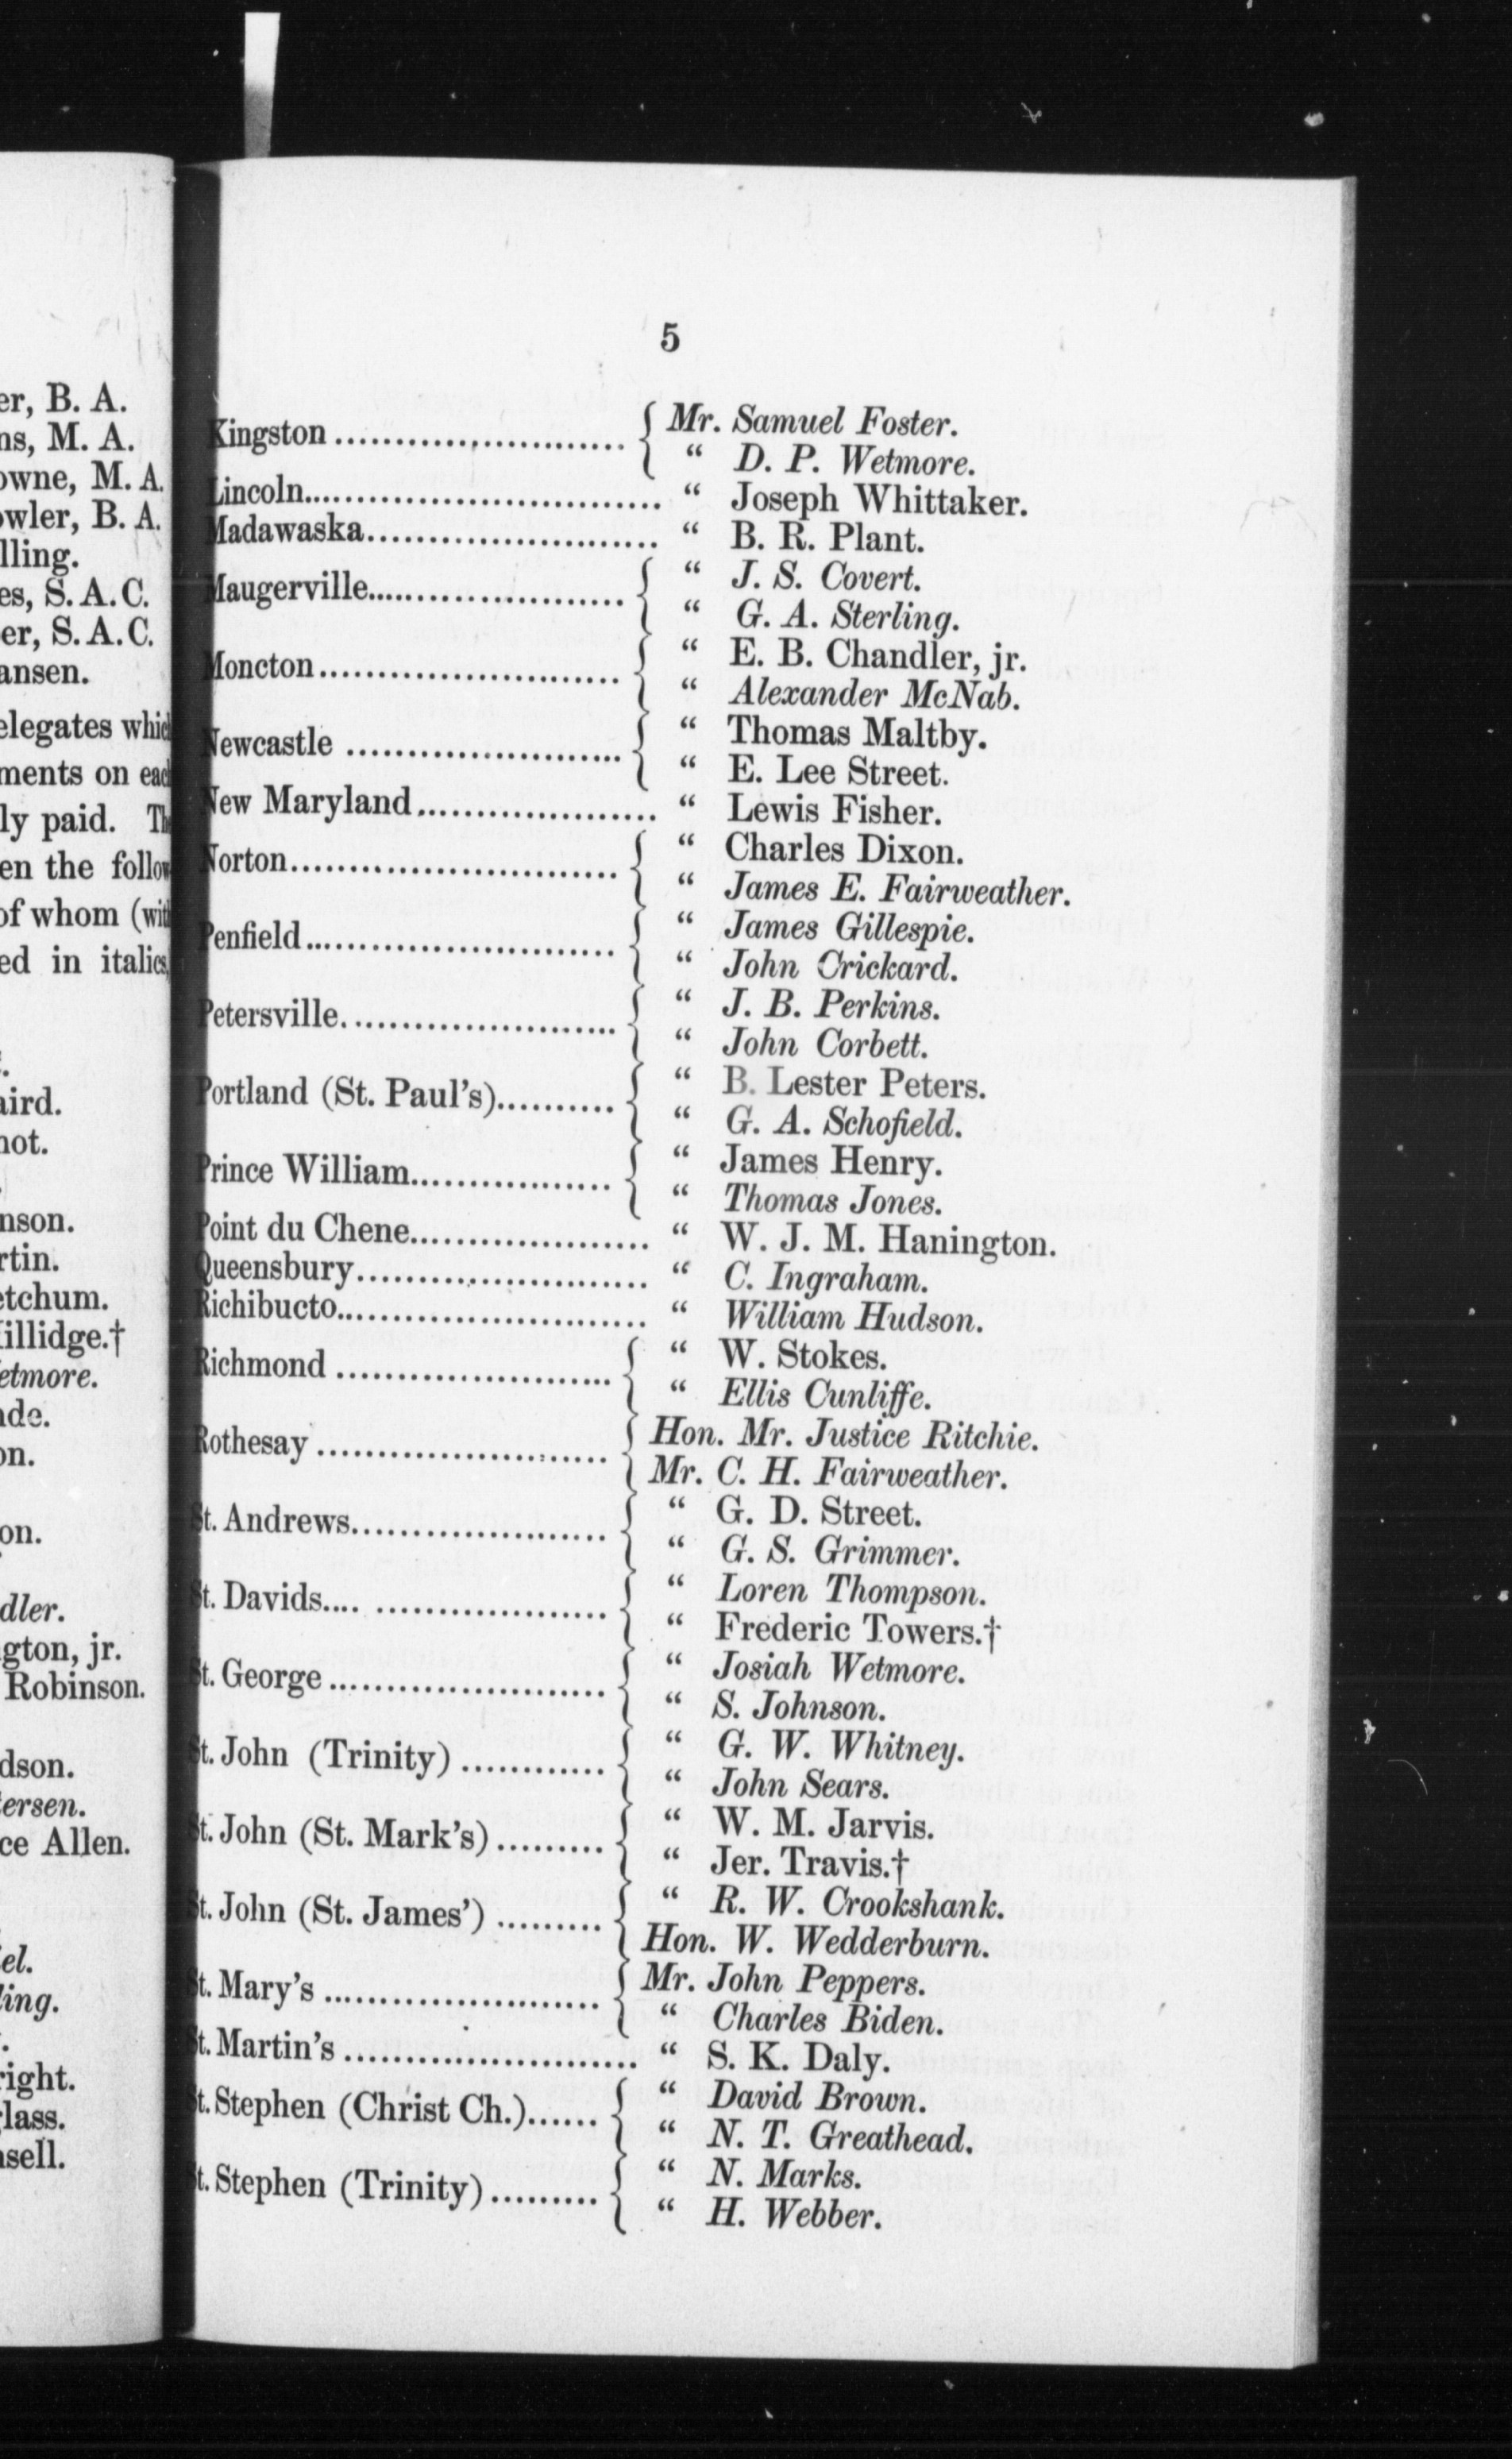 er, B. A.
ns, M. A.
owne, M. A.
owler, B. A.
lling.
es, S. A. C.
er, S. A. C.
ansen.
elegates which
ments on each
ly paid. The
en the follow
of whom (with
ed in italics,
aird.
not.
nson.
rtin.
etchum.
illidge.†
etmore.
ade.
on.
on.
dler.
gton, jr.
Robinson.
dson.
tersen.
ce Allen.
el.
ling.
right.
glass.
nsell.
5
Kingston { Mr. Samuel Foster.
" D. P. Wetmore.
Lincoln " Joseph Whittaker.
Madawaska " B. R. Plant.
Maugerville { " J. S. Covert.
" G. A. Sterling.
Moncton { " E. B. Chandler, jr.
" Alexander McNab.
Newcastle { " Thomas Maltby.
" E. Lee Street.
New Maryland " Lewis Fisher.
Norton { " Charles Dixon.
" James E. Fairweather.
Penfield { " James Gillespie.
" John Crickard.
Petersville { " J. B. Perkins.
" John Corbett.
Portland (St. Paul's) { " B. Lester Peters.
" G. A. Schofield.
Prince William { " James Henry.
" Thomas Jones.
Point du Chene " W. J. M. Hanington.
Queensbury " C. Ingraham.
Richibucto " William Hudson.
Richmond { " W. Stokes.
" Ellis Cunliffe.
Rothesay { Hon. Mr. Justice Ritchie.
Mr. C. H. Fairweather.
St. Andrews { " G. D. Street.
" G. S. Grimmer.
St. Davids { " Loren Thompson.
" Frederic Towers.†
St. George { " Josiah Wetmore.
" S. Johnson.
St. John (Trinity) { " G. W. Whitney.
" John Sears.
St. John (St. Mark's) { " W. M. Jarvis.
" Jer. Travis.†
St. John (St. James') { " R. W. Crookshank.
Hon. W. Wedderburn.
St. Mary's { Mr. John Peppers.
" Charles Biden.
St. Martin's " S. K. Daly.
St. Stephen (Christ Ch.) { " David Brown.
" N. T. Greathead.
St. Stephen (Trinity) { " N. Marks.
" H. Webber.